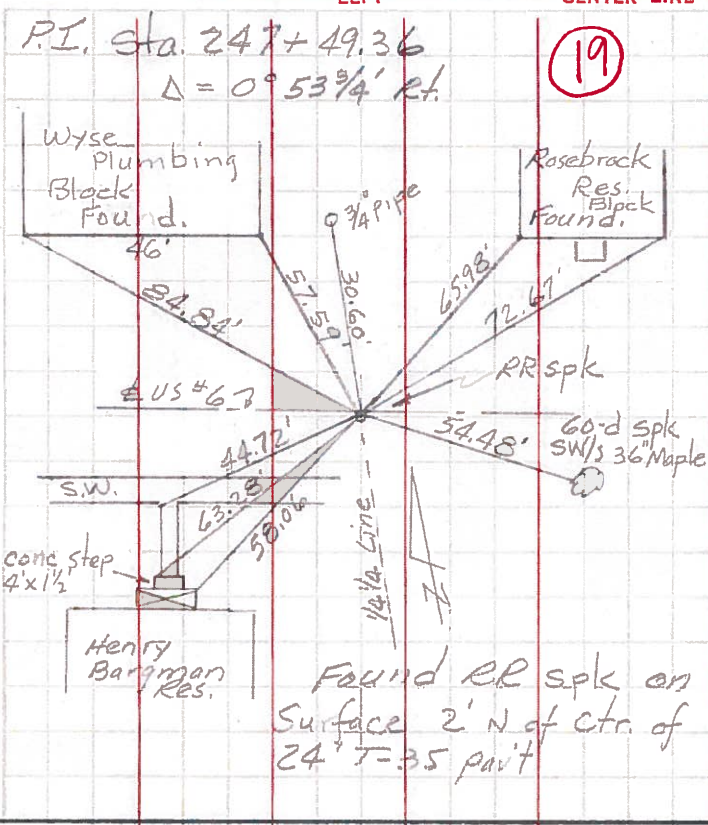 LEFT
CENTER LINE
P.I. Sta. 247+49.36
Δ = 0° 53 3/4' Rt.
19
Wyse
Plumbing
Block
Found.
46'
Rosebrock
Res.
Block
Found.
3/4" pipe
84.84'
57.59'
30.60'
65.98'
72.67'
RR spk
℄ US #6
44.72'
54.48'
60-d spk
SW/S 36" Maple
S.W.
63.28'
58.06
1/4 1/4 Line
conc step
4'x1½'
Henry
Bargman
Res.
Found RR spk on
Surface 2' N of Ctr. of
24' T-35 pav't